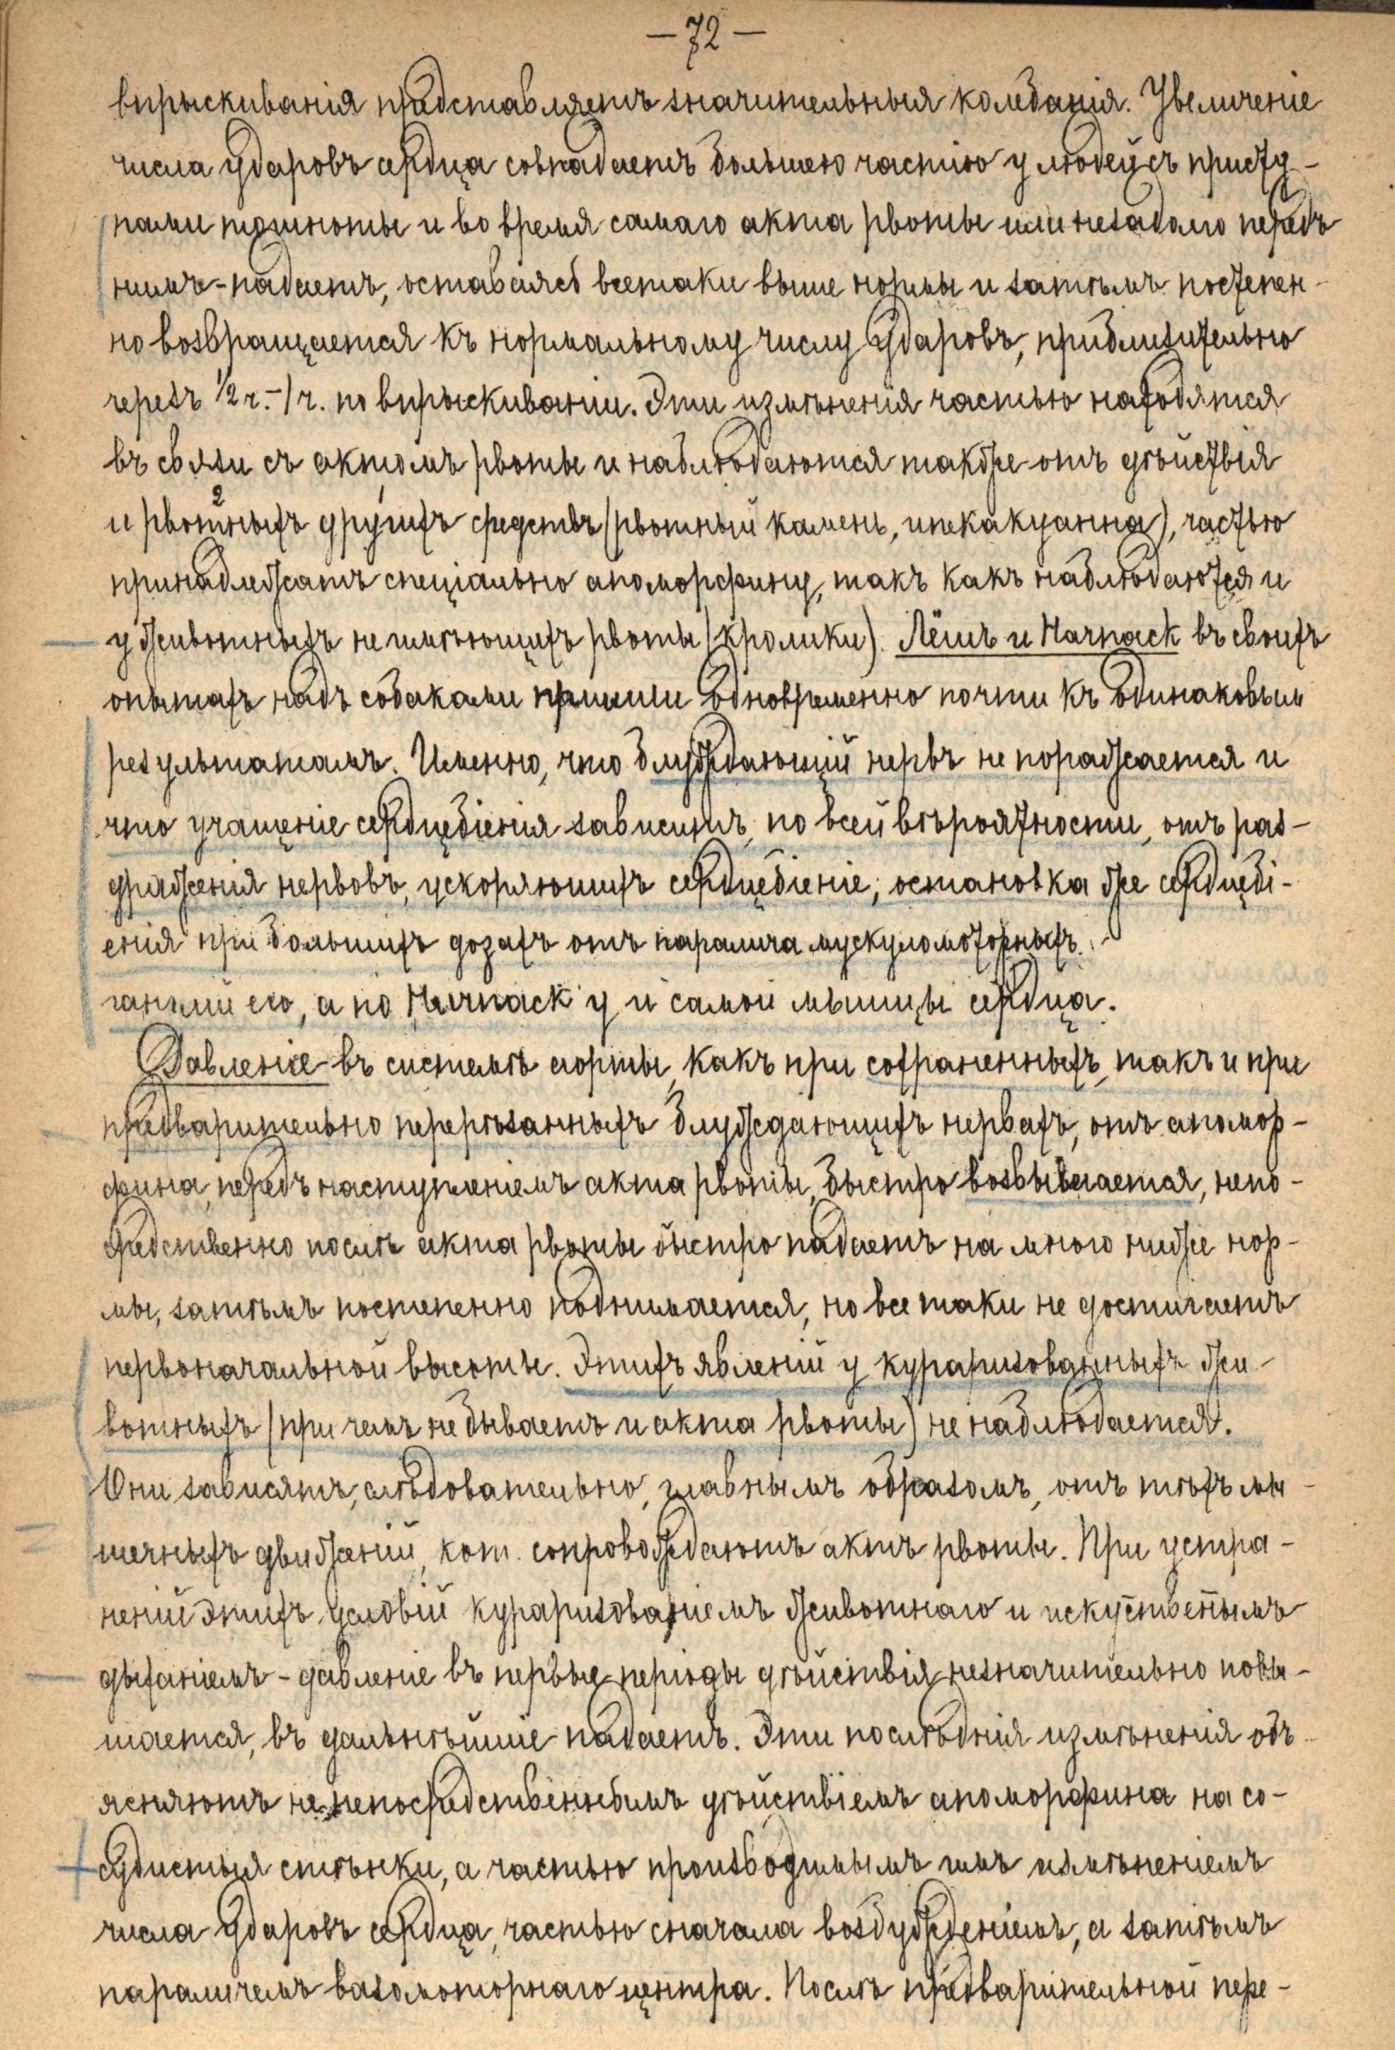 — 72 —
впрыскиванія представляетъ значительныя колебанія. Увеличеніе
числа ударовъ сердца совпадаетъ большею частію у людей съ присту-
пами тошноты и во время самаго акта рвоты или незадолго передъ
нимъ - падаетъ, оставаясь всетаки выше нормы и затѣмъ постепен-
но возвращается къ нормальному числу ударовъ, приблизительно
черезъ 1/2 ч. - 1 ч. по впрыскиваніи. Эти измѣненія частью находятся
въ связи съ актомъ рвоты и наблюдаются также отъ дѣйствія
и рвотныхъ² другихъ¹ средствъ (рвотный камень, ипекакуанна), частью
принадлежатъ спеціально апоморфину, такъ какъ наблюдаются и
у животныхъ не имѣющихъ рвоты (кролики). Лёшъ и Harnack въ своихъ
опытахъ надъ собаками пришли одновременно почти къ одинаковым
результатамъ. Именно, что блуждающій нервъ не поражается и
что учащеніе сердцебіенія зависитъ, по всей вѣроятности, отъ раз-
драженія нервовъ, ускоряющихъ сердцебіеніе, остановка же сердцебі-
енія при большихъ дозахъ отъ паралича мускуломоторныхъ
гангліи его, а по Harnack'у и самой мышцы сердца.
Давленіе въ системѣ аорты, какъ при сохраненныхъ, такъ и при
предварительно перерѣзанныхъ блуждающихъ нервахъ, отъ апомор-
фина, передъ наступленіемъ акта рвоты, быстро возвышается, непо-
средственно послѣ акта рвоты быстро падаетъ на много ниже нор-
мы, затѣмъ постепенно поднимается, но все таки не достигаетъ
первоначальной высоты. Этихъ явленій у кураризованныхъ жи-
вотныхъ (при чемъ не бываетъ и акта рвоты) не наблюдается.
Они зависятъ, слѣдовательно, главнымъ образомъ, отъ тѣхъ мы-
шечныхъ движеній, кот. сопровождаютъ актъ рвоты. При устра-
неніи этихъ условій кураризованіемъ животнаго и искуственымъ
дыханіемъ - давленіе въ первые періоды дѣйствія незначительно повы-
шается, въ дальнѣйшіе падаетъ. Эти послѣднія измѣненія объ-
ясняютъ не непосредственнымъ дѣйствіемъ апоморфина на со-
судистыя стѣнки, а частью производимымъ имъ измѣненіемъ
числа ударовъ сердца, частью сначала возбужденіемъ, а затѣмъ
параличемъ вазомоторнаго центра. Послѣ предварительной пере-